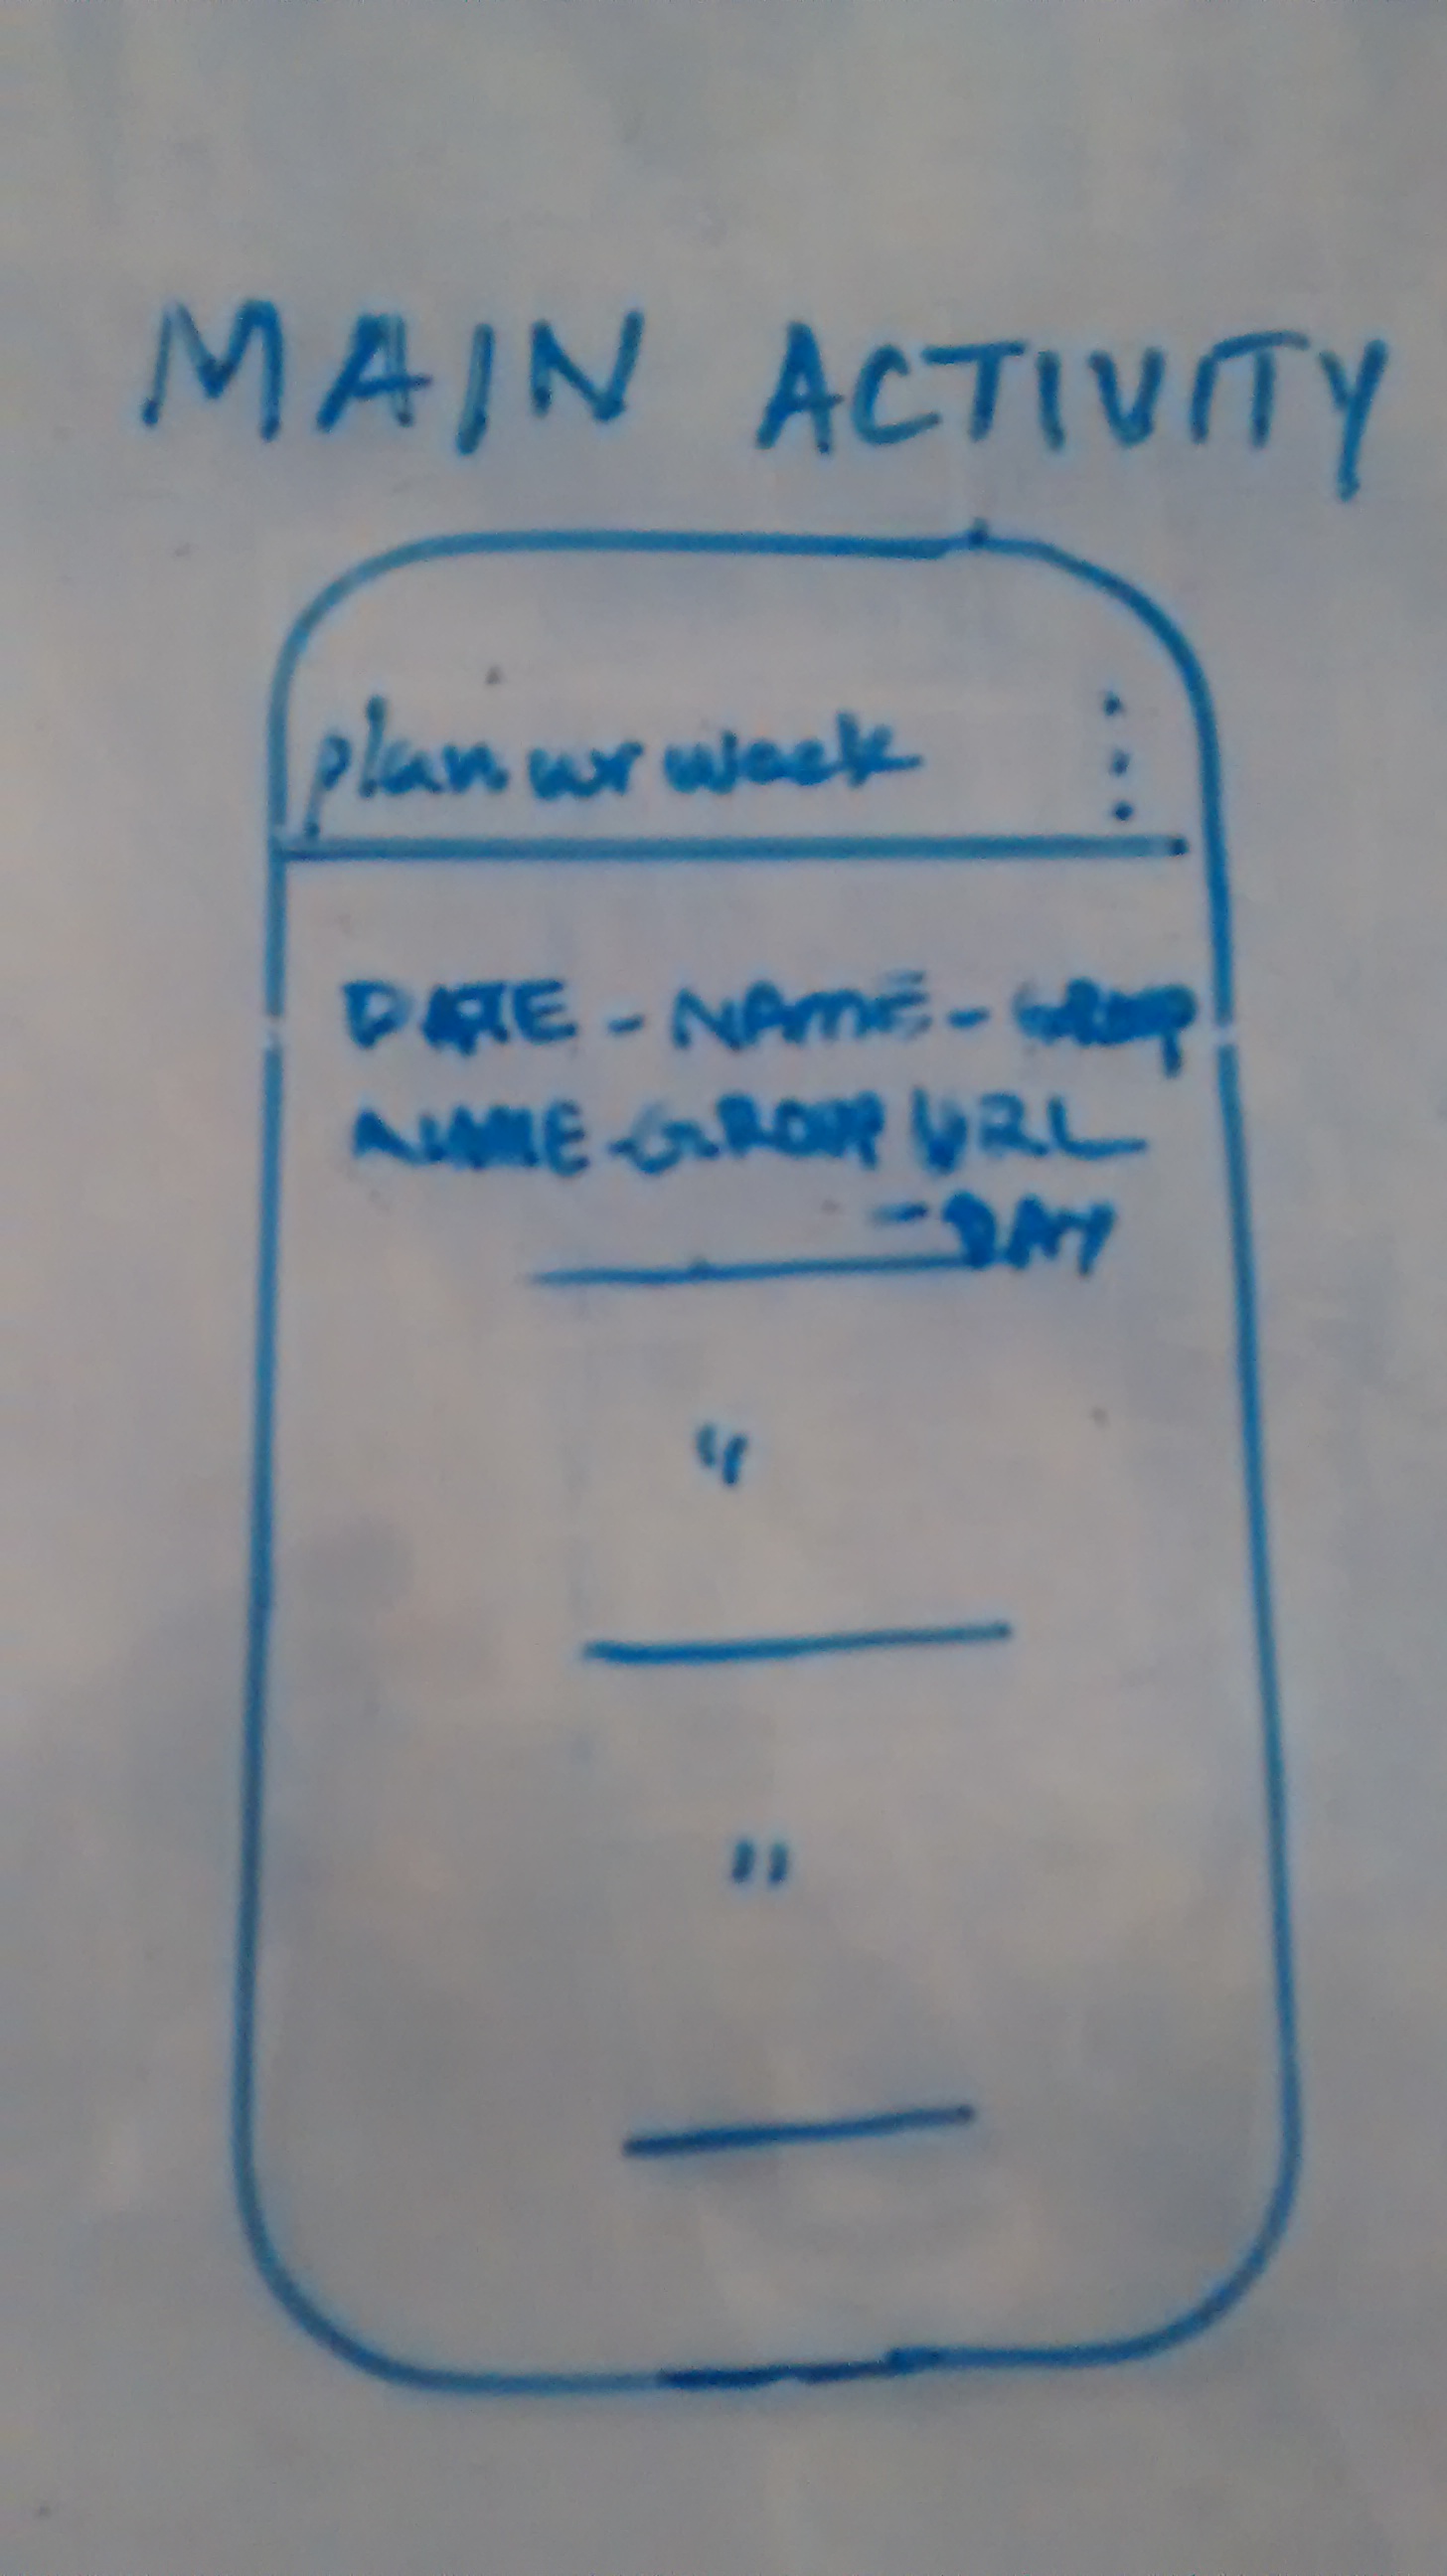 MAIN ACTIVITY
plan ur week
DATE - NAME - GROUP
NAME - GROUP URL
- DAY
"
"